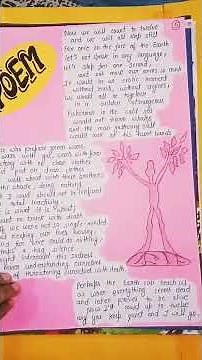 POEM
Now we will count to twelve
and we will all keep still
For once on the face of the Earth
let's not speak in any language,
let's stop for one second,
and not move our arms so much
It would be an exotic moment
without rush, without engines,
we would all be together
in a sudden strangeness
Fishermen in the cold sea
would not harm whales
and the man gathering salt
would look at his hurt hands
who prepare green wars,
wars with gas, wars with fire
victory with no
put on clean clothes
walk about with their brothers
the shade, doing nothing
I want should not be confused
total inactivity
is what it is about;
want no truck with death
If we were not so single-minded
about keeping our lives moving,
and for once could do nothing,
perhaps a huge silence
might interrupt this sadness
never understanding ourselves
threatening ourselves with death.
Perhaps the Earth can teach us
as when everything seems dead
and later proves to be alive
Now I'll count up to twelve
and you keep quiet and I will go.